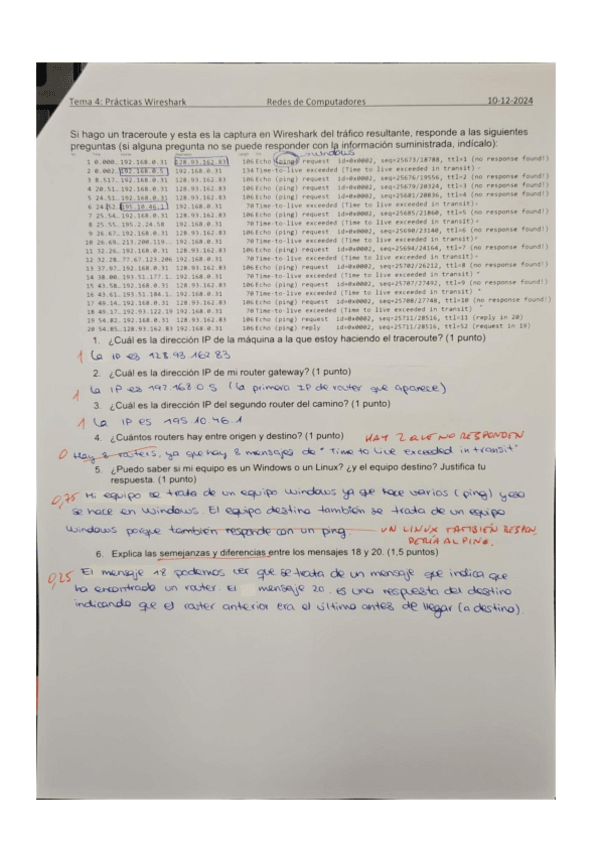 Tema 4: Prácticas Wireshark Redes de Computadores 10-12-2024
Si hago un traceroute y esta es la captura en Wireshark del tráfico resultante, responde a las siguientes
preguntas (si alguna pregunta no se puede responder con la información suministrada, indícalo):
windows
1 0.000. 192.168.0.31 128.93.162.83 106 Echo (ping) request id=0x0002, seq=25673/18788, ttl=1 (no response found!)
2 0.002. 192.168.0.5 192.168.0.31 134 Time-to-live exceeded (Time to live exceeded in transit)
3 8.517. 192.168.0.31 128.93.162.83 106 Echo (ping) request id=0x0002, seq=25676/19556, ttl=2 (no response found!)
4 20.51. 192.168.0.31 128.93.162.83 106 Echo (ping) request id=0x0002, seq=25679/20324, ttl=3 (no response found!)
5 24.51. 192.168.0.31 128.93.162.83 106 Echo (ping) request id=0x0002, seq=25681/20836, ttl=4 (no response found!)
6 24.52. 195.10.46.1 192.168.0.31 70 Time-to-live exceeded (Time to live exceeded in transit)
7 25.54. 192.168.0.31 128.93.162.83 106 Echo (ping) request id=0x0002, seq=25685/21860, ttl=5 (no response found!)
8 25.55. 195.2.24.58 192.168.0.31 70 Time-to-live exceeded (Time to live exceeded in transit)
9 26.67. 192.168.0.31 128.93.162.83 106 Echo (ping) request id=0x0002, seq=25690/23140, ttl=6 (no response found!)
10 26.69. 213.200.119.. 192.168.0.31 70 Time-to-live exceeded (Time to live exceeded in transit)
11 32.26. 192.168.0.31 128.93.162.83 106 Echo (ping) request id=0x0002, seq=25694/24164, ttl=7 (no response found!)
12 32.28. 77.67.123.206 192.168.0.31 70 Time-to-live exceeded (Time to live exceeded in transit)
13 37.97. 192.168.0.31 128.93.162.83 106 Echo (ping) request id=0x0002, seq=25702/26212, ttl=8 (no response found!)
14 38.00. 193.51.177.1. 192.168.0.31 70 Time-to-live exceeded (Time to live exceeded in transit)
15 43.58. 192.168.0.31 128.93.162.83 106 Echo (ping) request id=0x0002, seq=25707/27492, ttl=9 (no response found!)
16 43.61. 193.51.184.1. 192.168.0.31 70 Time-to-live exceeded (Time to live exceeded in transit)
17 49.14. 192.168.0.31 128.93.162.83 106 Echo (ping) request id=0x0002, seq=25708/27748, ttl=10 (no response found!)
18 49.17. 192.93.122.19 192.168.0.31 70 Time-to-live exceeded (Time to live exceeded in transit)
19 54.82. 192.168.0.31 128.93.162.83 106 Echo (ping) request id=0x0002, seq=25711/28516, ttl=11 (reply in 20)
20 54.85. 128.93.162.83 192.168.0.31 106 Echo (ping) reply id=0x0002, seq=25711/28516, ttl=52 (request in 19)
1. ¿Cuál es la dirección IP de la máquina a la que estoy haciendo el traceroute? (1 punto)
1 La IP es 128.93.162.83
2. ¿Cuál es la dirección IP de mi router gateway? (1 punto)
1 La IP es 192.168.0.5 (la primera IP de router que aparece)
3. ¿Cuál es la dirección IP del segundo router del camino? (1 punto)
1 La IP es 195.10.46.1
4. ¿Cuántos routers hay entre origen y destino? (1 punto) HAY 2 QUE NO RESPONDEN
0 Hay 8 routers, ya que hay 8 mensajes de "Time to live exceeded in transit"
5. ¿Puedo saber si mi equipo es un Windows o un Linux? ¿y el equipo destino? Justifica tu
respuesta. (1 punto)
0,75 Mi equipo se trata de un equipo Windows ya que hace varios (ping) y eso
se hace en Windows. El equipo destino también se trata de un equipo
Windows porque también responde con un ping UN LINUX TAMBIÉN RESPON,
DERÍA AL PING.
6. Explica las semejanzas y diferencias entre los mensajes 18 y 20. (1,5 puntos)
0,25 El mensaje 18 podemos ver que se trata de un mensaje que indica que
ha encontrado un router. El mensaje 20 es una respuesta del destino
indicando que el router anterior era el último antes de llegar (a destino).